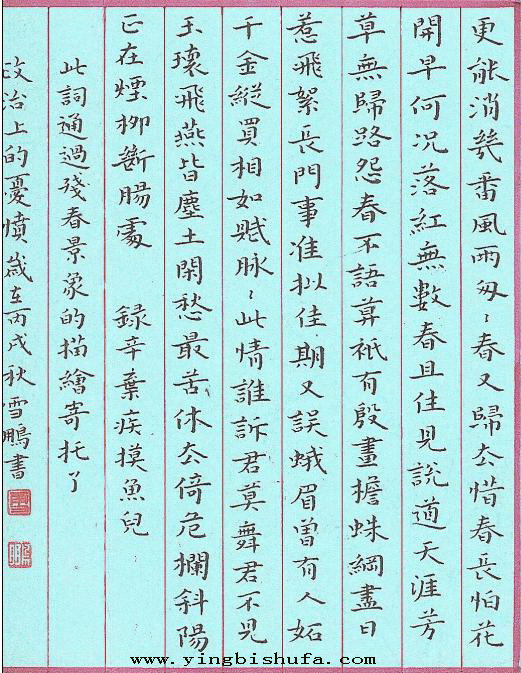 更能消幾番風雨匆〻春又歸去惜春長怕花
開早何况落紅無數春且住見說道天涯芳
草無歸路怨春不語算祇有殷畫擔蛛網盡日
惹飛絮長門事准拟佳期又誤蛾眉曾有人妬
千金縱買相如賦脉〻此情誰訴君莫舞君不見
玉環飛燕皆塵土閑愁最苦休去倚危欄斜陽
正在煙柳斷腸處 錄辛棄疾摸魚兒
此詞通過殘春景象的描繪寄托了
政治上的憂憤歲在丙戌秋雪鵬書
www.yingbishufa.com